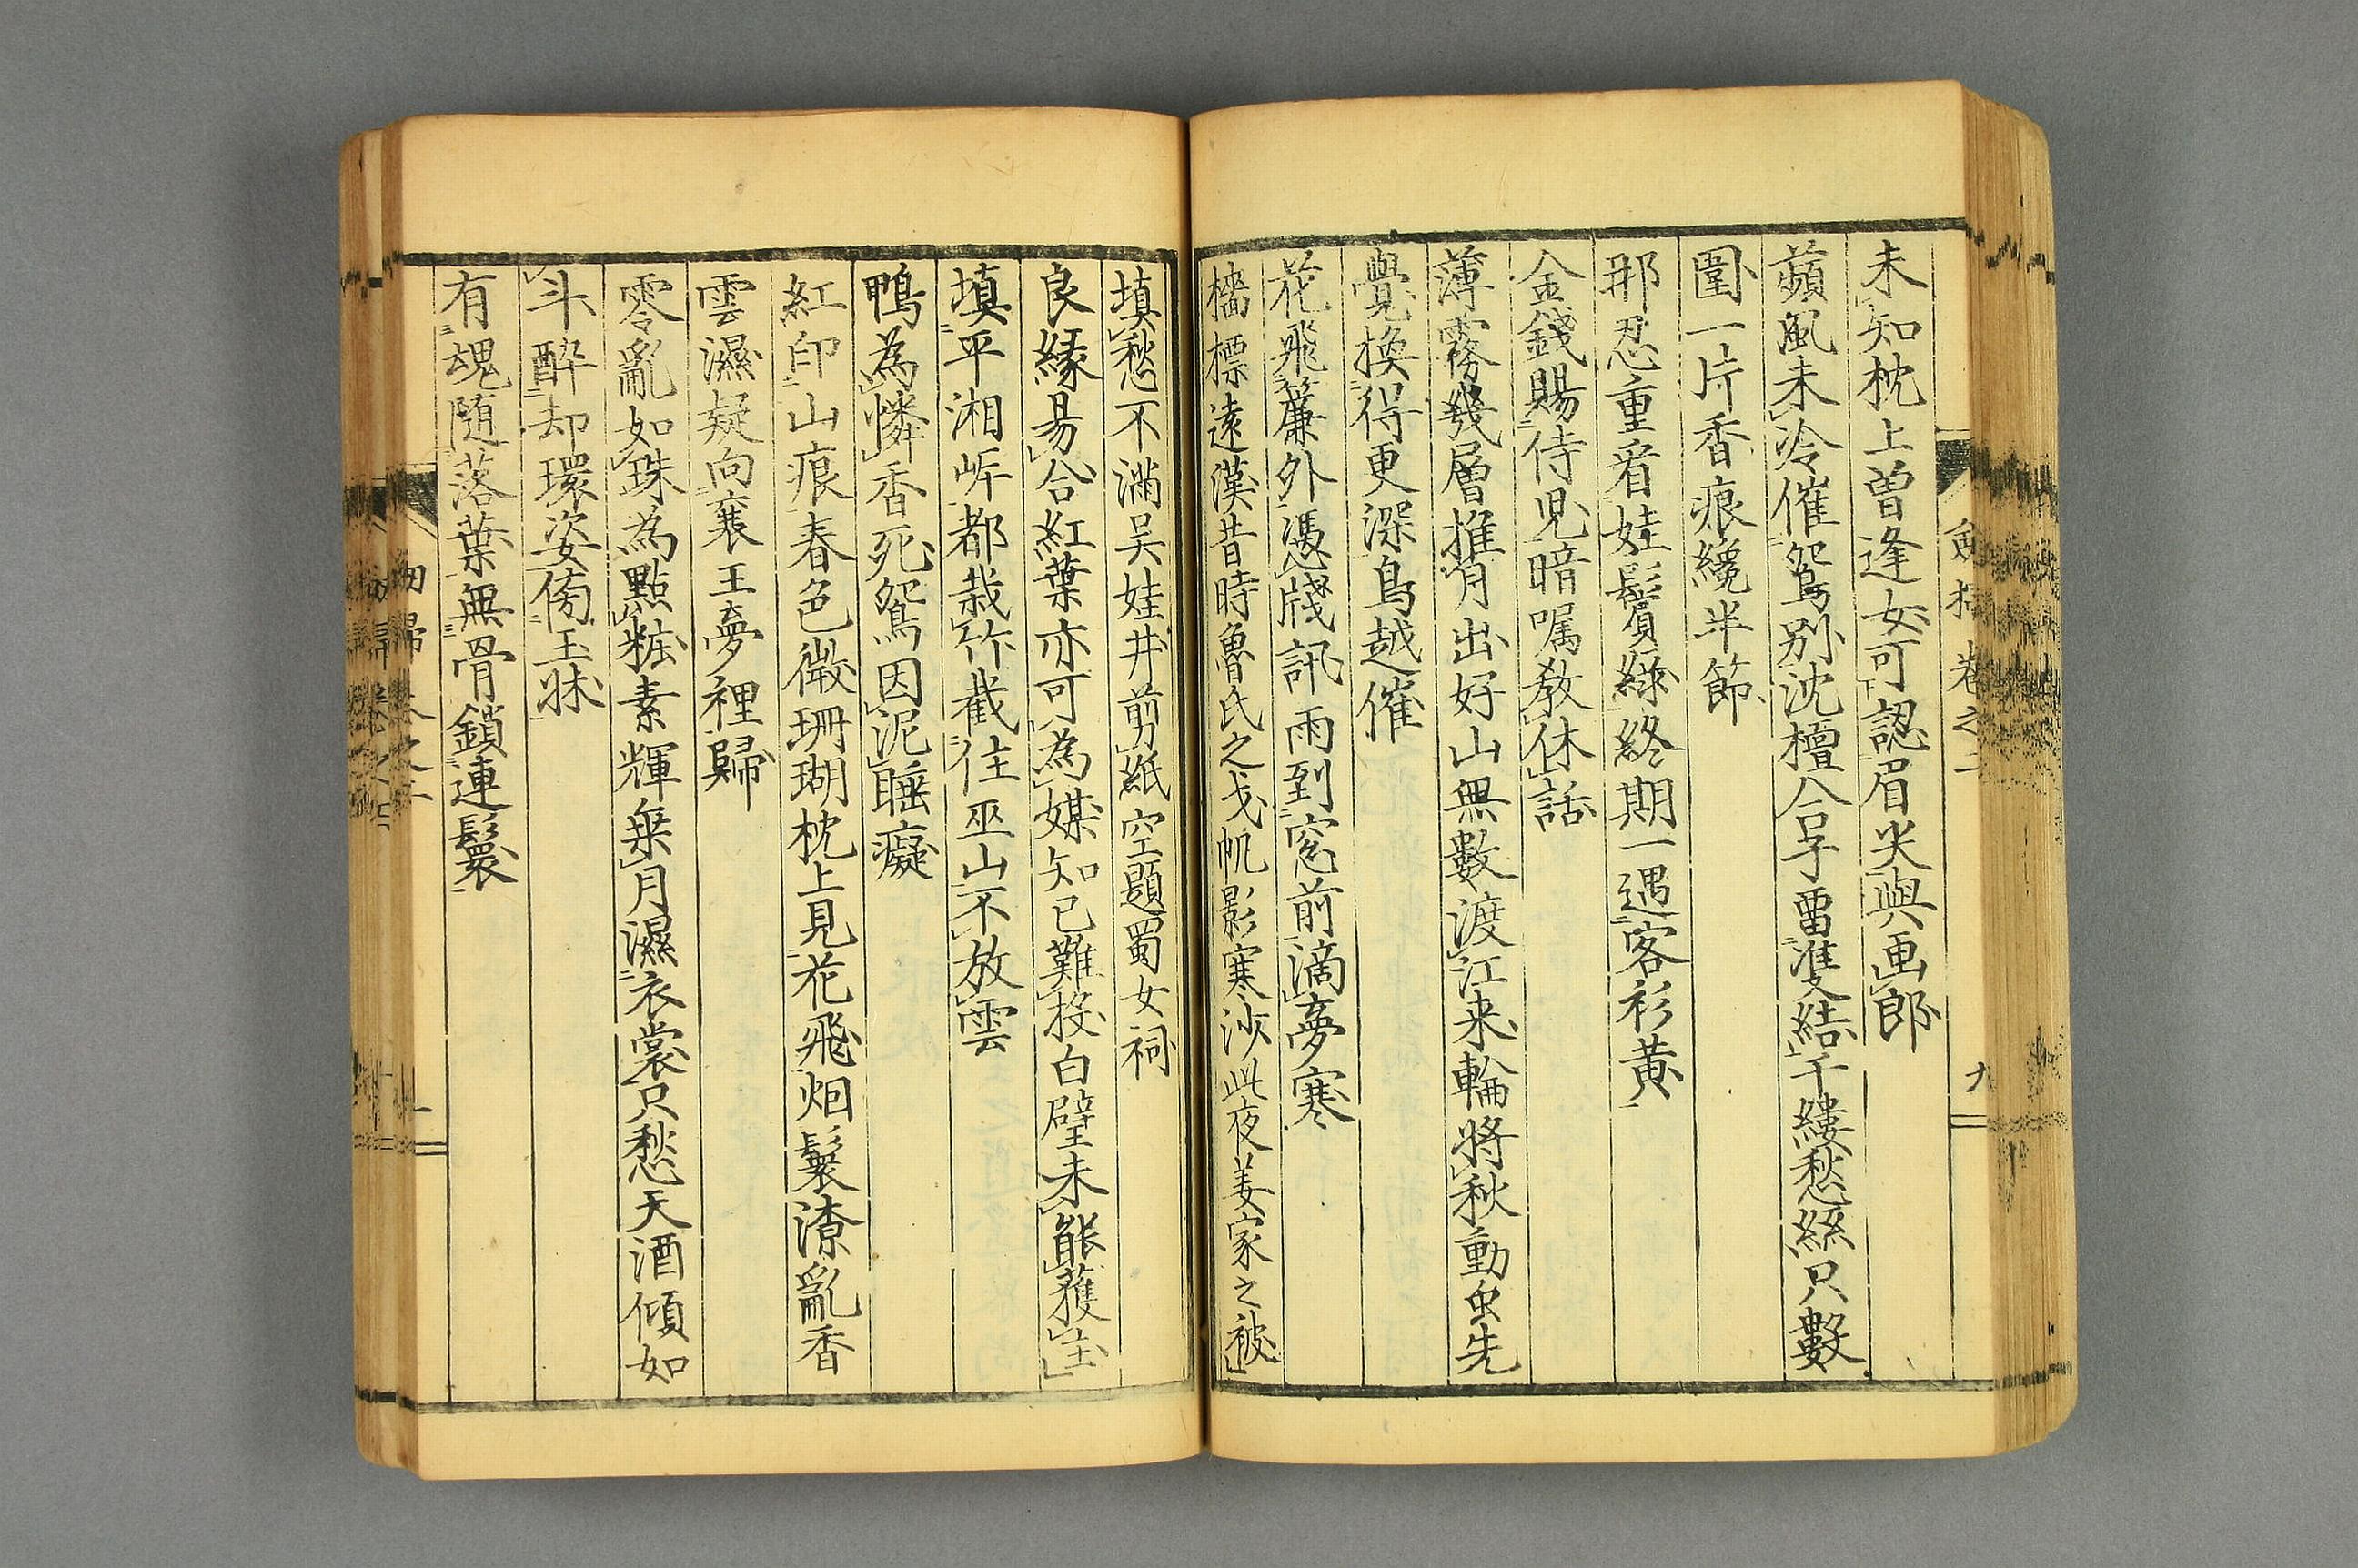 未知枕上曽逢女可認眉尖與画郎
蘋風未冷催鴛別沈檀合子畱雙結千縷愁絲只數
圍一片香痕纔半節
那忍重看娃鬢綠終期一遇客衫黄
金錢賜侍児暗嘱教休話
薄霧幾層推月出好山無數渡江来輪將秋動虫先
覺換得更深鳥越催
花飛簾外憑牋訊雨到窓前滴夢寒
檣標遠漢昔時魯氏之戈帆影寒沙此夜姜家之被
填愁不滿吴娃井剪紙空題蜀女祠
良緣易合紅葉亦可為媒知己難投白璧未能獲主
填平湘岸都栽竹截住巫山不放雲
鴨為憐香死鴛因泥睡癡
紅印山痕春色微珊瑚枕上見花飛烟鬟潦亂香
雲濕疑向襄王夢裡歸
零亂如珠為點粧素輝乗月濕衣裳只愁天酒傾如
斗醉却環姿傍玉牀
有魂随落葉無骨鎖連鬟
卷之二
九